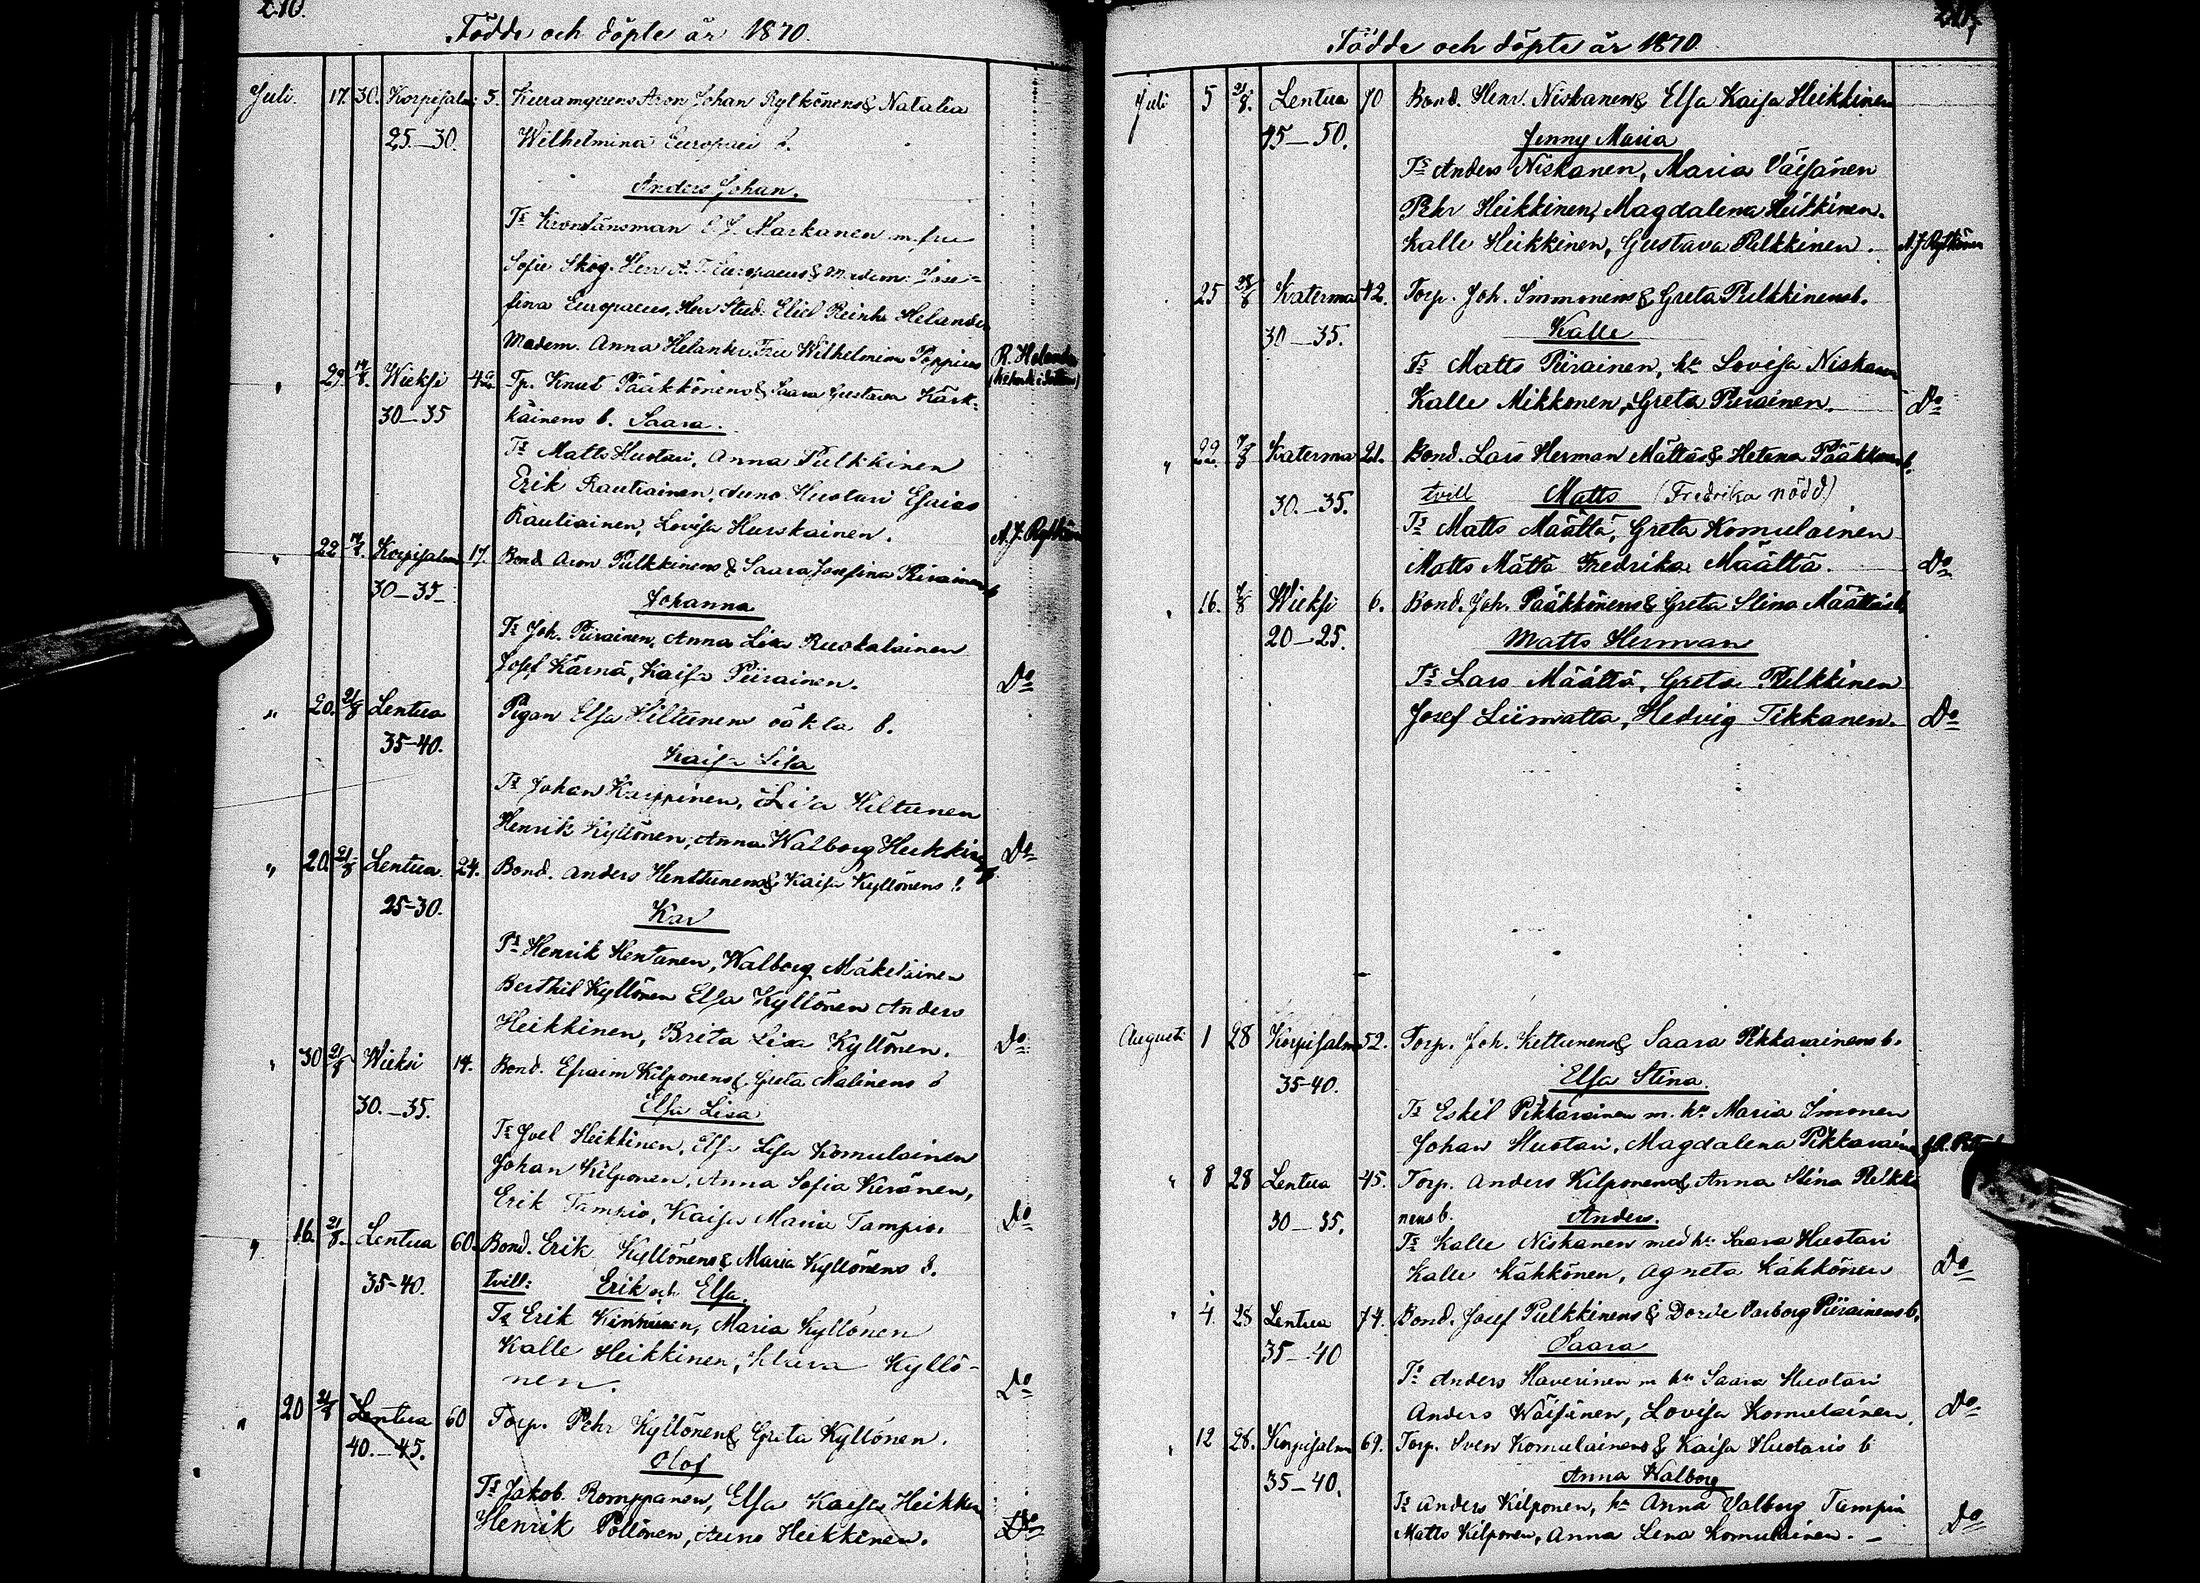 210.
Födde och döpte år 1870.
Juli. 17. 30. Korpisalmi 5. Aron Johan Rytkönens & Natalia
25.–30. Wilhelmina Europaei b.
Anders Johan.
Ts Kronlänsman E. J. Markanen m. fru
Sofie Skog. Herr A. F. Europaeus & Madem: Jose-
fina Europaeus, Herr Stud. Eliel Reinh. Helander
Madem. Anna Helander, Fru Wilhelmina Poppius R. Helander
" 29. 14/8. Wieksi 42. Tp. Knut Pääkkönens & Saara Gustava Kärk-
30–35 käinens b. Saara.
Ts Matts Huotari, Anna Pulkkinen
Erik Rautiainen, Huotari Esaias
Rautiainen, Lovisa Hurskainen. A. J. Rytkönen
" 22 14/8. Korpisalmi 17. Bond Aron Pulkkinens & Saara Josefina Piirainens b
30–35 Johanna
Ts Joh. Piirainen, Anna Lisa Ruokolainen
Josef Kärnä, Kaisa Piirainen. Do
" 20. 21/8 Lentua Pigan Elsa Hiltunens oäkta b.
35–40. Kaisa Lisa
Ts Johan Karppinen, Lisa Hiltunen
Henrik Kyllönen, Anna Walborg Heikkinen Do
" 20. 21/8 Lentua 24. Bond. Anders Henttunens & Kaisa Kyllönens b.
25–30. Kar
Ts Henrik Hentunen, Walborg Mäkeläinen
Berthil Kyllönen Elsa Kyllönen Anders
Heikkinen, Brita Lisa Kyllönen. Do
" 30 21/8 Wieksi 14. Bond. Efraim Kilponens & Greta Malinens b
30.–35. Elsa Lisa
Ts Joel Heikkinen, Elsa Lisa Komulainen
Johan Kilponen, Anna Sofia Keränen,
Erik Tampio, Kaisa Maria Tampio. Do
" 16. 21/8. Lentua 60. Bond. Erik Kyllönens & Maria Kyllönens b.
35–40. tvill: Erik och Elsa.
Ts Erik Kinnunen, Maria Kyllönen
Kalle Heikkinen, Klara Kyllö-
nen. Do
" 20 21/8 Lentua 60 Torp. Pehr Kyllönens & Greta Kyllönen.
40.–45. Olof
Ts Jakob Romppanen, Elsa Kaisa Heikkinen
Henrik Pöllönen, Heikkinen. Do
Födde och döpte år 1870
Juli 5 21/8. Lentua 70 Bond. Henr. Niskanens & Elsa Kaisa Heikkinen
45–50. Jenny Maria
Ts Anders Niskanen, Maria Väisänen
Pehr Heikkinen, Magdalena Heikkinen.
Kalle Heikkinen, Gustava Pulkkinen. A. J. Rytkönen
25 28/8 Katerma 42. Torp. Joh. Immonens & Greta Pulkkinens b.
30–35. Kalle
Ts Matts Piirainen, hu Lovisa Niskanen
Kalle Mikkonen, Greta Piirainen. Do
" 22. 7/8 Katerma 21. Bond. Lars Herman Mättäs & Helena Pääkkönens b.
30.–35. tvill Matts (Fredrika nödd.)
Ts Matts Määttä, Greta Komulainen
Matts Mättä Fredrika Määttä. Do
" 16. 7/8 Wieksi 6. Bond. Joh. Pääkkönens & Greta Stina Määttäs b.
20–25. Matts Herman
Ts Lars Määttä, Greta Pulkkinen
Josef Liimatta, Hedvig Tikkanen. Do
Augusti 1 28 Korpisalmi 52. Torp. Joh. Kettunens & Saara Pikkarainens b.
35–40. Elsa Stina.
Ts Eskil Pikkarainen m. hu Maria Imonen
Johan Huotari, Magdalena Pikkarainen
" 8 28 Lentua 45. Torp. Anders Kilponens & Anna Stina Pulkki
30–35. nens b. Anders.
Ts Kalle Niskanen med hu Saara Huotari
Kalle Kähkönen, Agneta Kähkönen Do
" 4. 28 Lentua 74. Bond. Josef Pulkkinens & Dorde Varborg Piirainens b.
35–40 Saara
Ts Anders Haverinen m hu Saara Huotari
Anders Wäisänen, Lovisa Komulainen. Do
" 12 28. Korpisalmi 69. Torp. Sven Komulainens & Kaisa Huotaris b
35–40. Anna Walborg
Ts Anders Kilponen, hu Anna Valborg Tampio
Matts Kilponen, Anna Lena Komulainen. – Do